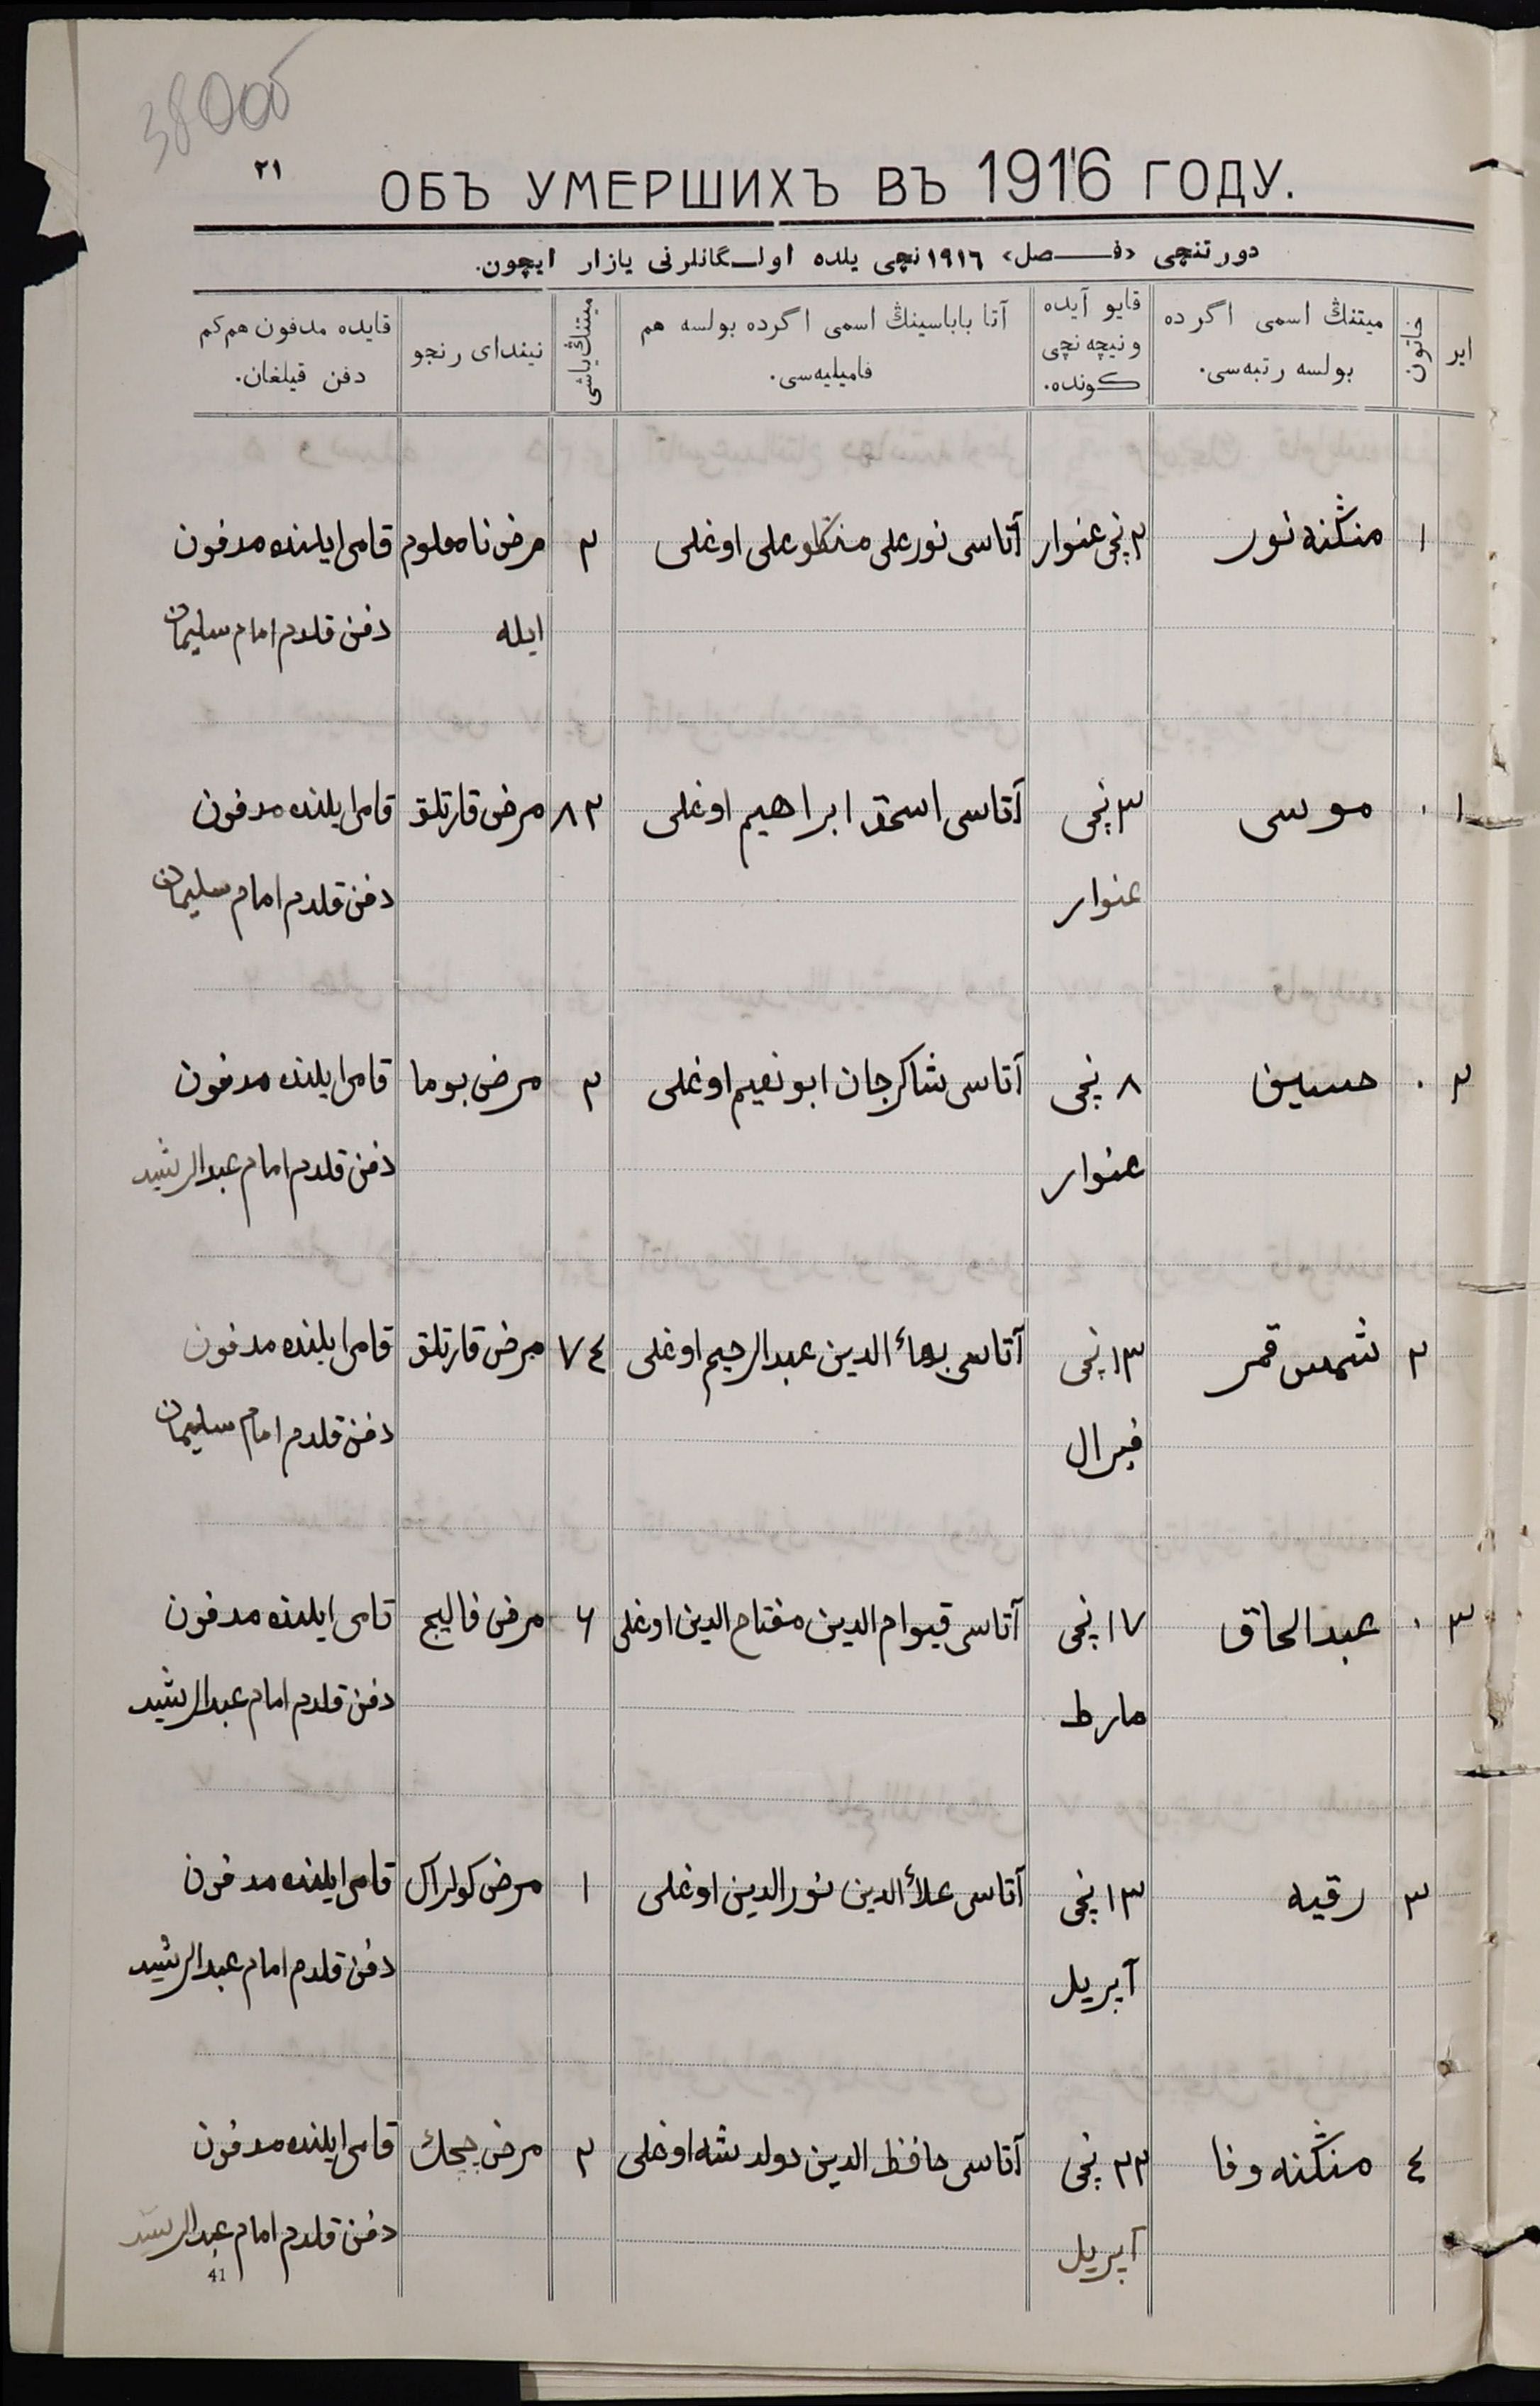 38 об
٢١
ОБЪ УМЕРШИХЪ ВЪ 1916 ГОДУ.
دورتنچی «فـــصل» ١٩١٦نچی یلده اولـگانلرنی یازار ایچون.
ایر
خاتون
میتنڭ اسمی اگرده
بولسه رتبه‌سی.
قایو آیده
و نیچه نچی
کونده.
آتا باباسینڭ اسمی اگرده بولسه هم
فامیلیه‌سی.
میتنڭ یاشی
نیندای رنجو
قایده مدفون هم کم
دفن قیلغان.
١ منڭنه نور ٢ نچی عنوار آتاسی نورعلی منڭلو علی اوغلی ٢ مرض نامعلوم قامرایلنده مدفون
ایله دفن قلدم امام سلیمان
١ ٠ موسی ٣ نچی آتاسی اسحق ابراهیم اوغلی ٨٢ مرض قارتلق قامرایلنده مدفون
عنوار دفن قلدم امام سلیمان
٢ ٠ حسین ٨ نچی آتاسی شاکرجان ابونعیم اوغلی ٢ مرض بوما قامرایلنده مدفون
عنوار دفن قلدم امام عبدالرشید
٢ شمس قمر ١٣ نچی آتاسی بهاٴالدین عبدالرحیم اوغلی ٧٤ مرض قارتلق قامرایلنده مدفون
فبرال دفن قلدم امام سلیمان
٣ ٠ عبدالحاق ١٧ نچی آتاسی قیوام الدین مفتاح الدین اوغلی ٦ مرض فالیج قامرایلنده مدفون
مارط دفن قلدم امام عبدالرشید
٣ رقیه ١٣ نچی آتاسی علاٴالدین نورالدین اوغلی ١ مرض کولراک قامرایلنده مدفون
آپریل دفن قلدم امام عبدالرشید
٤ منڭنه وفا ٢٣ نچی آتاسی حافظ الدین دولدشه اوغلی ٢ مرض چچك قامرایلنده مدفون
آپریل دفن قلدم امام عبدالرشید
41